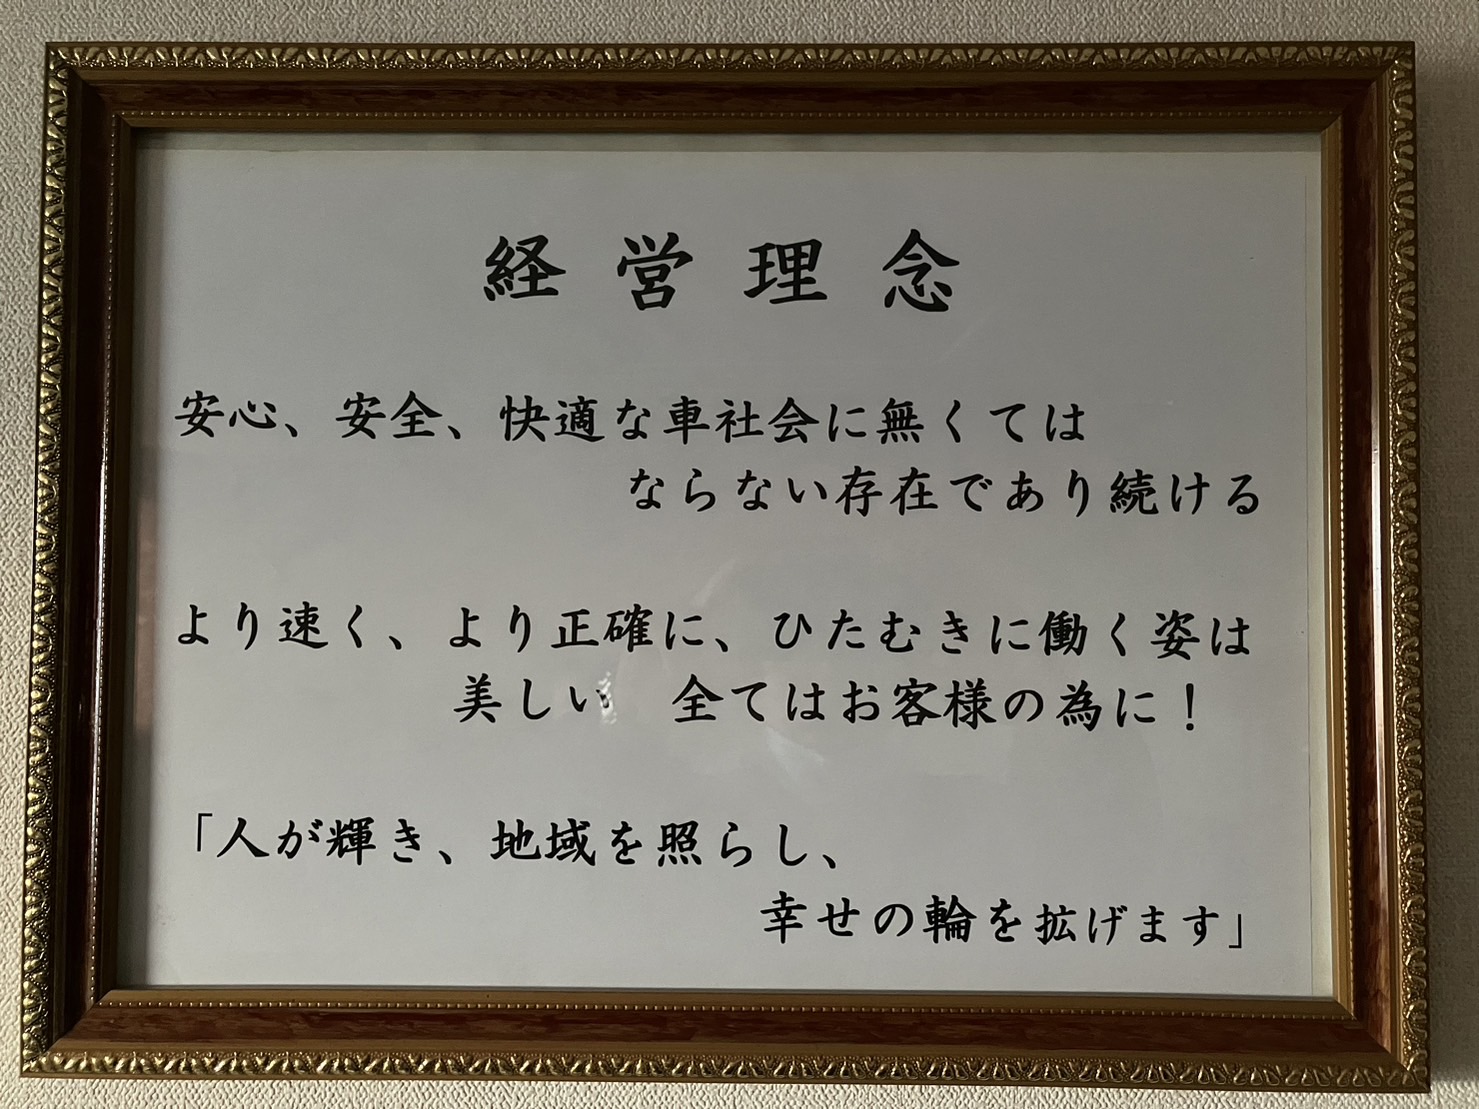 経営理念
安心、安全、快適な車社会に無くては
ならない存在であり続ける
より速く、より正確に、ひたむきに働く姿は
美しい　全てはお客様の為に！
「人が輝き、地域を照らし、
幸せの輪を拡げます」